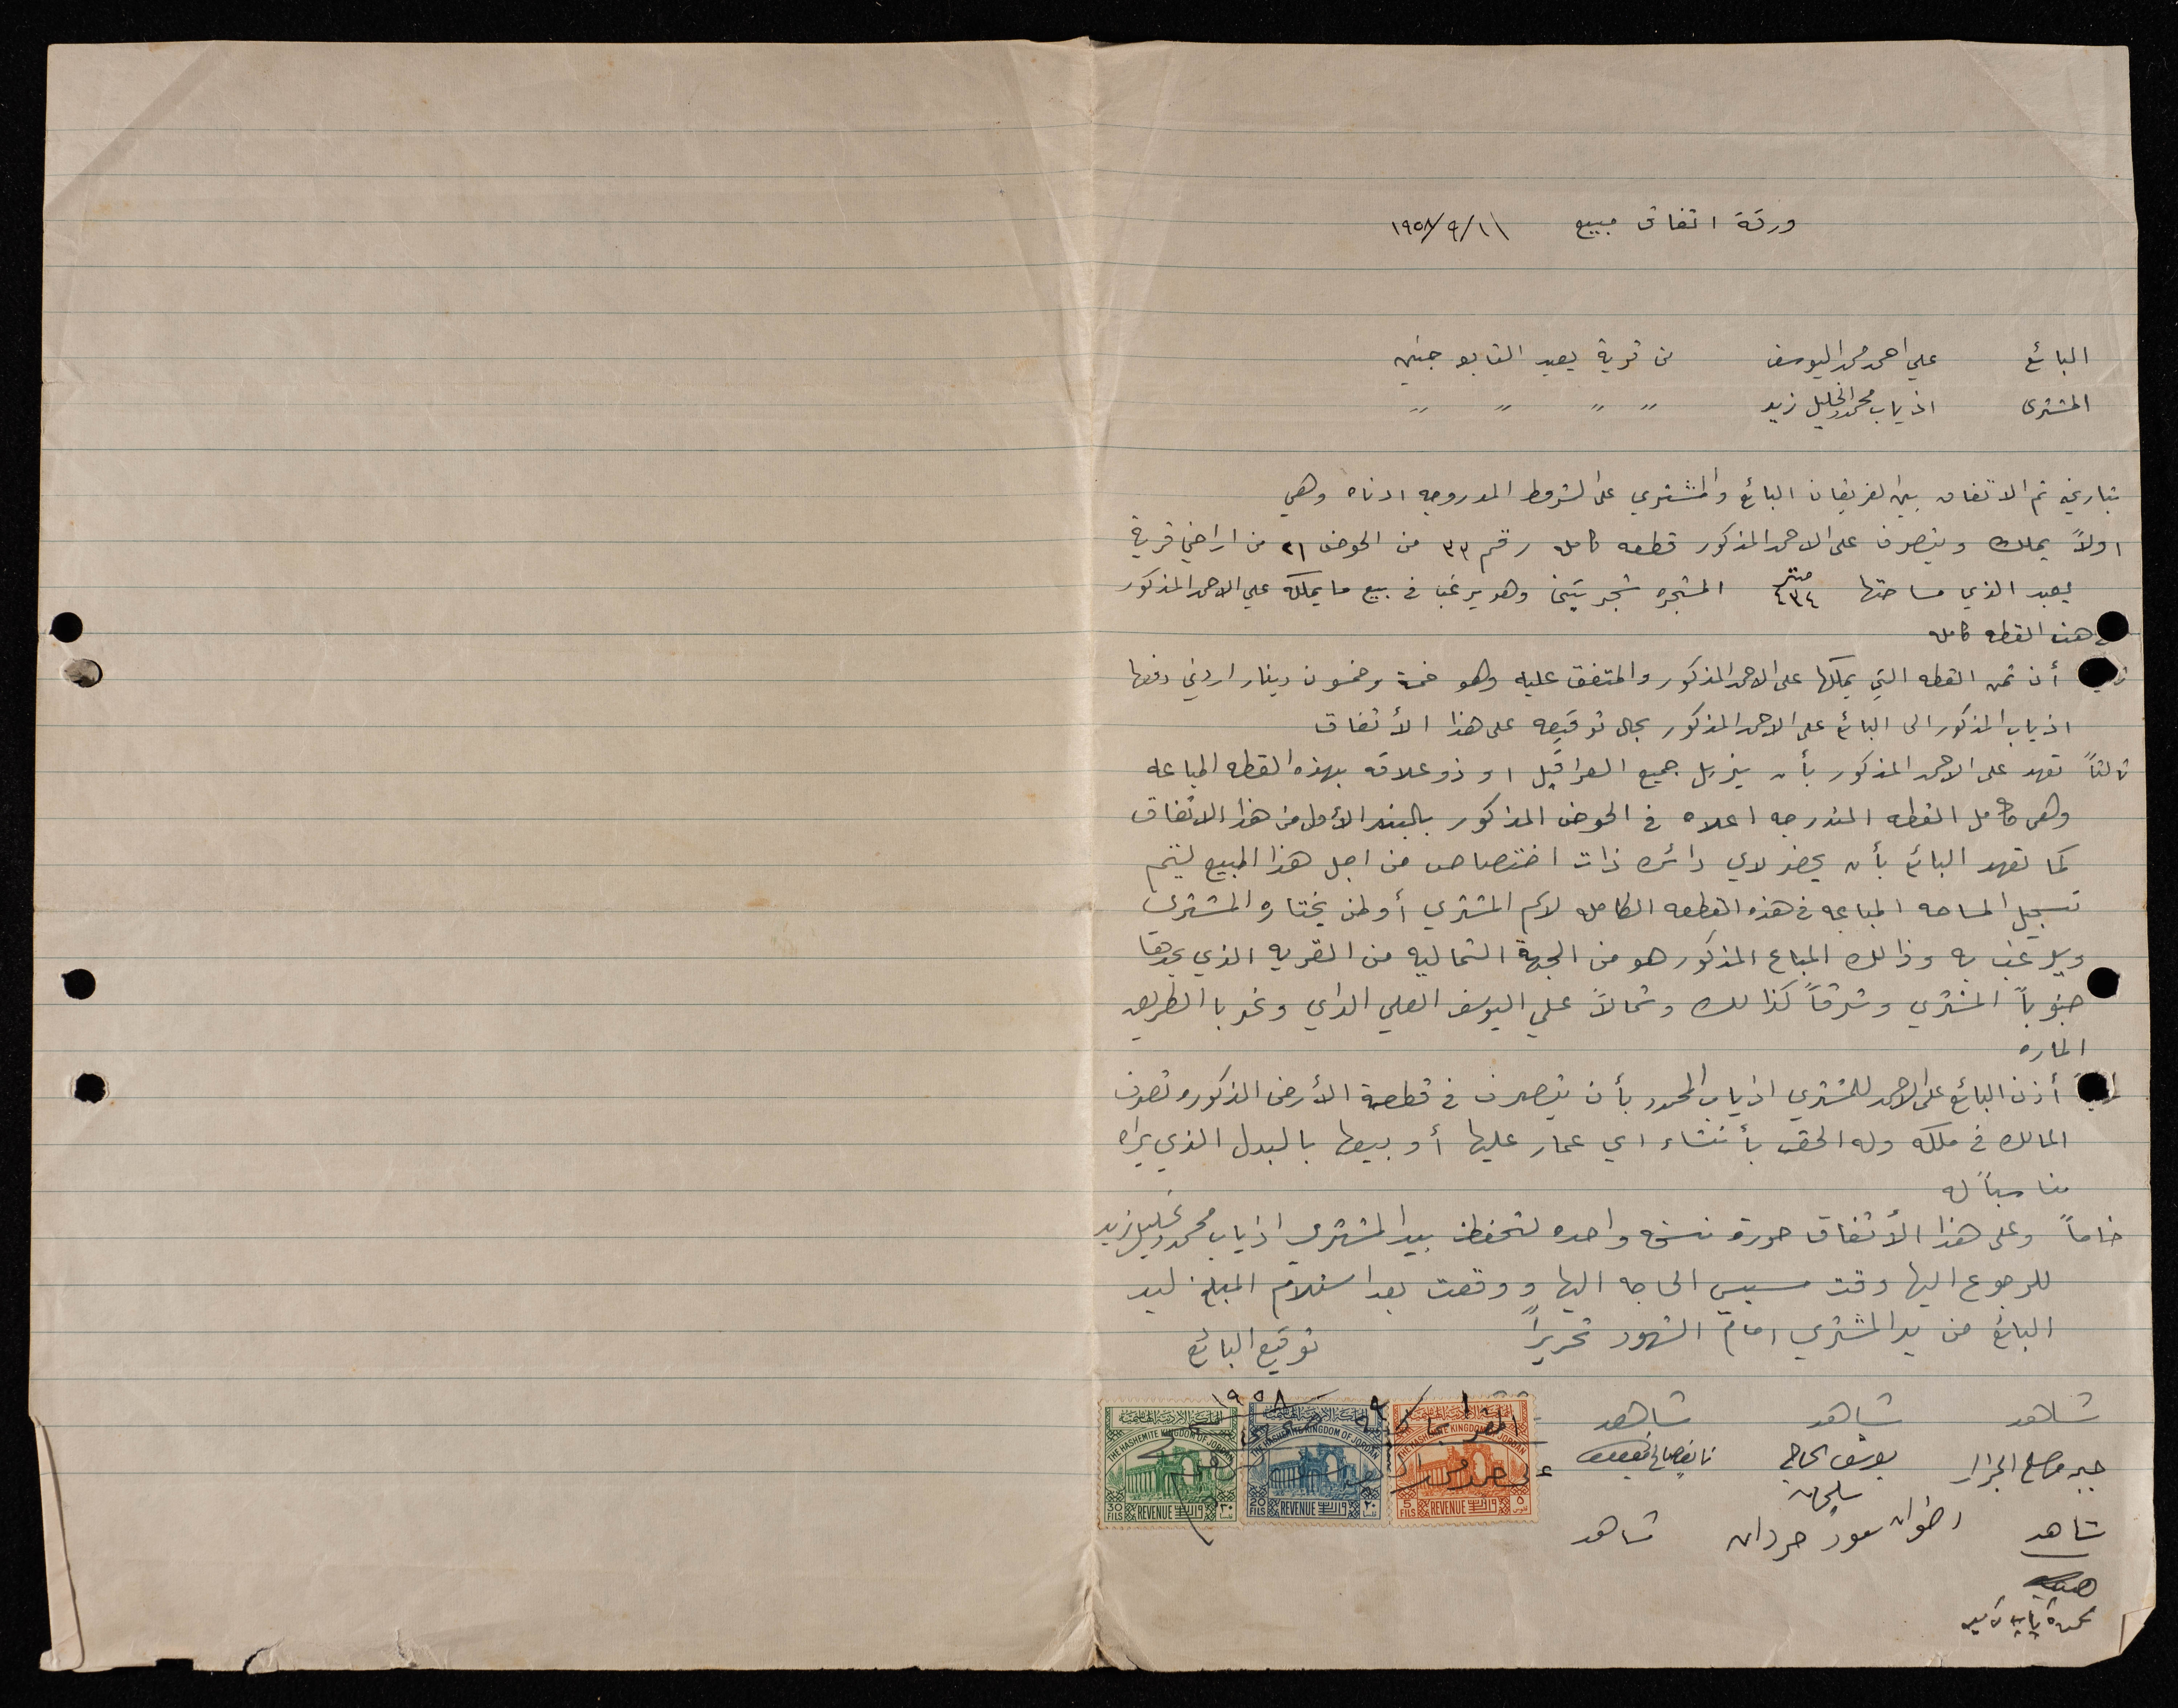 ورقة اتفاق مبيع ١١/٩/١٩٥٨
البائع علي احمد محمد اليوسف من قرية يعبد التابعه جنين
المشتري اذياب محمود الخليل زيد " " " "
بتاريخه تم الاتفاق بين الفريقان البائع والمشتري على الشروط المدروجه ادناه وهي
اولاً يملك ويتصرف علي الاحمد المذكور قطعه كامله رقم ٣٣ من الحوض ٢١ من اراضي قرية
يعبد الذي مساحتها ٤٣٤ متر المشجره شجر تين وهو يرغب في بيع ما يملكه علي الاحمد المذكور
هذه القطعه كامله
أن ثمن القطعه التي يملكها علي الاحمد المذكور والمتفق عليه وهو خمسة وخمسون دينار اردني دفعها
اذياب المذكور الى البائع علي الاحمد المذكور بحال توقيعه على هذا الأتفاق
ثالثاً تعهد علي الاحمد المذكور بأن يزيل جميع العراقيل او ذو علاقه بهذه القطعه المباعه
وهي كامل القطعه المندرجه اعلاه في الحوض المذكور بالبند الأول من هذا الاتفاق
كما تعهد البائع بأن يحضر لاي دائره ذات اختصاص من اجل هذا المبيع ليتم
تسجيل المساحه المباعه في هذه القطعه الكامله لاسم المشتري أو لمن يختاره المشتري
ويرغب به وذالك المباع المذكور هو من الجهة الشماليه من القريه الذي يحدها
جنوباً المشتري وشرقاً كذالك وشمالاً علي اليوسف العلي الداي وغربا الطريق
الماره
أذن البائع علي الاحمد للمشتري اذياب المحمود بأن يتصرف في قطعة الأرض المذكوره تصرف
المالك في ملكه وله الحق بأنشاء اي عمار عليها أو بيعها بالبدل الذي يراه
مناسباً له
خامساً وعلى هذا الأتفاق حررة نسخه واحده لتحفظ بيد المشتري اذياب محمود خليل زيد
للرجوع اليها وقت مسيس الحاجه اليها ووقعت بعد استلام المبلغ ليد
البائع من يد المشتري امام الشهود تحريراً توقيع البائع
شاهد شاهد شاهد ١٩٥٨
جبر مصلح الجرار يوسف الحاج سليمان
THE HASHEMITE KINGDOM OF JORDAN THE HASHEMITE KINGDOM OF JORDAN THE HASHEMITE KINGDOM OF JORDAN
30 FILS REVENUE ٣٠ 20 FILS REVENUE ٢٠ 5 FILS REVENUE ٥
شاهد رضوان سعود حردان شاهد